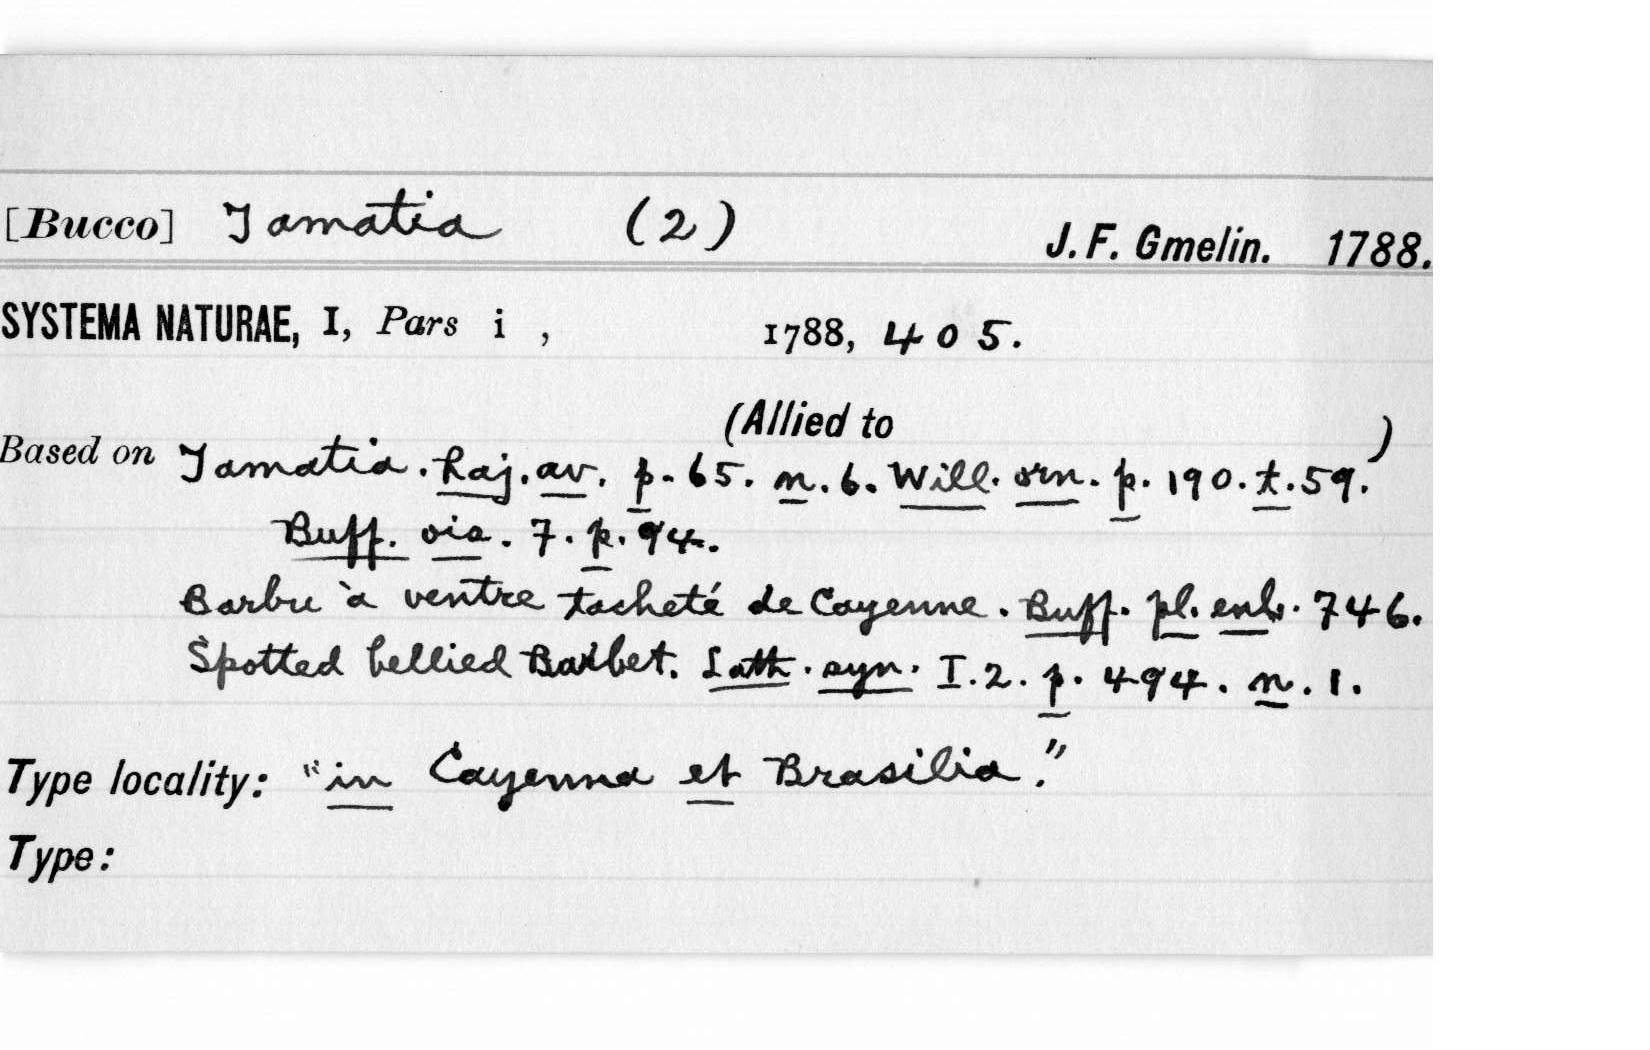 [Bucco] Tamatia (2) J. F. Gmelin. 1788.
SYSTEMA NATURAE, I, Pars i , 1788, 405.
(Allied to )
Based on Tamatia. Raj. av. p. 65. n. 6. Will. orn. p. 190. t. 59.
Buff. ois. 7. p. 94.
Barbu à ventre tacheté de Cayenne. Buff. pl. enl. 746.
Spotted bellied Barbet. Lath. syn. I. 2. p. 494. n. 1.
Type locality: "in Cayenna et Brasilia."
Type: